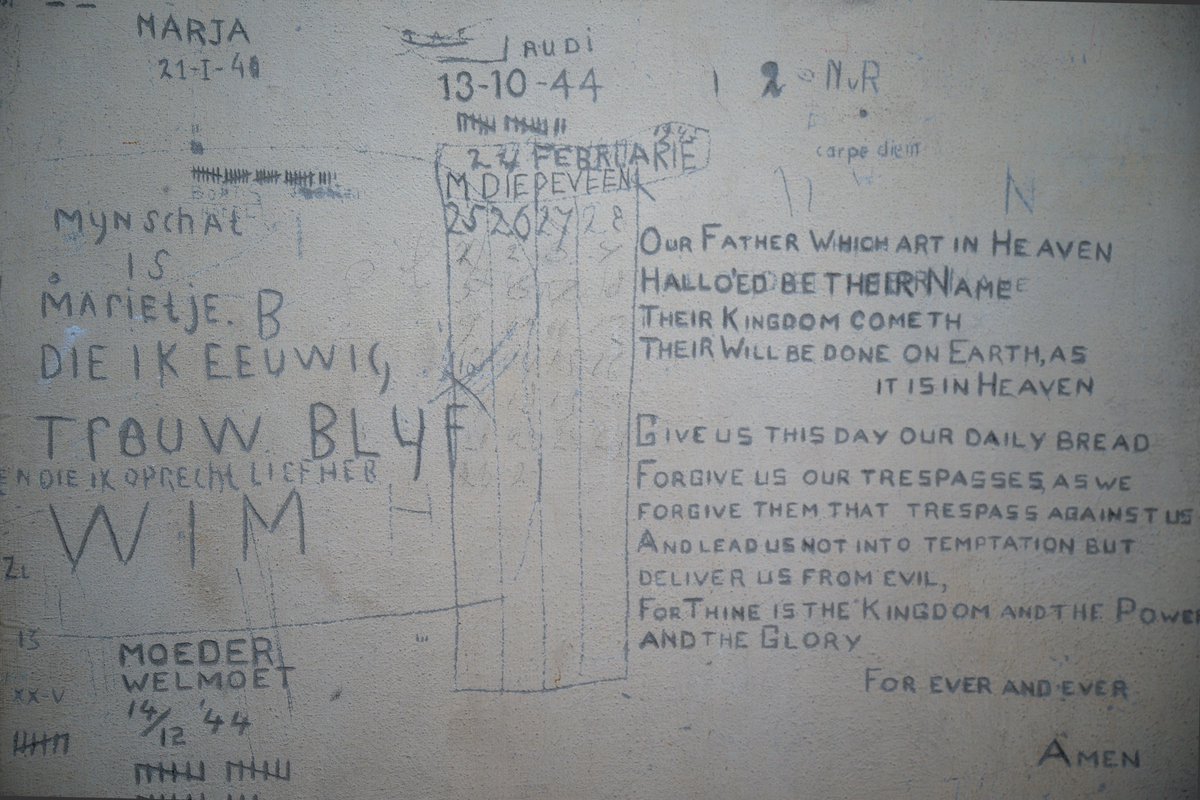 MARJA
RUDI
13-10-44
2 NvR
carpe diem
1945
24 FEBRUARIE
M. DIEPEVEEN
25 26 27 28
MYN SCHAT
IS
MARIETJE. B
DIE IK EEUWIG
TROUW BLYF
EN DIE IK OPRECHT LIEFHEB
WIM
OUR FATHER WHICH ART IN HEAVEN
HALLO'ED BE THEIR NAME
THEIR KINGDOM COMETH
THEIR WILL BE DONE ON EARTH, AS
IT IS IN HEAVEN
GIVE US THIS DAY OUR DAILY BREAD
FORGIVE US OUR TRESPASSES, AS WE
FORGIVE THEM THAT TRESPASS AGAINST US
AND LEAD US NOT INTO TEMPTATION BUT
DELIVER US FROM EVIL,
FOR THINE IS THE KINGDOM AND THE POWER
AND THE GLORY
FOR EVER AND EVER
AMEN
13
XX-V
MOEDER
WELMOET
14/12 '44